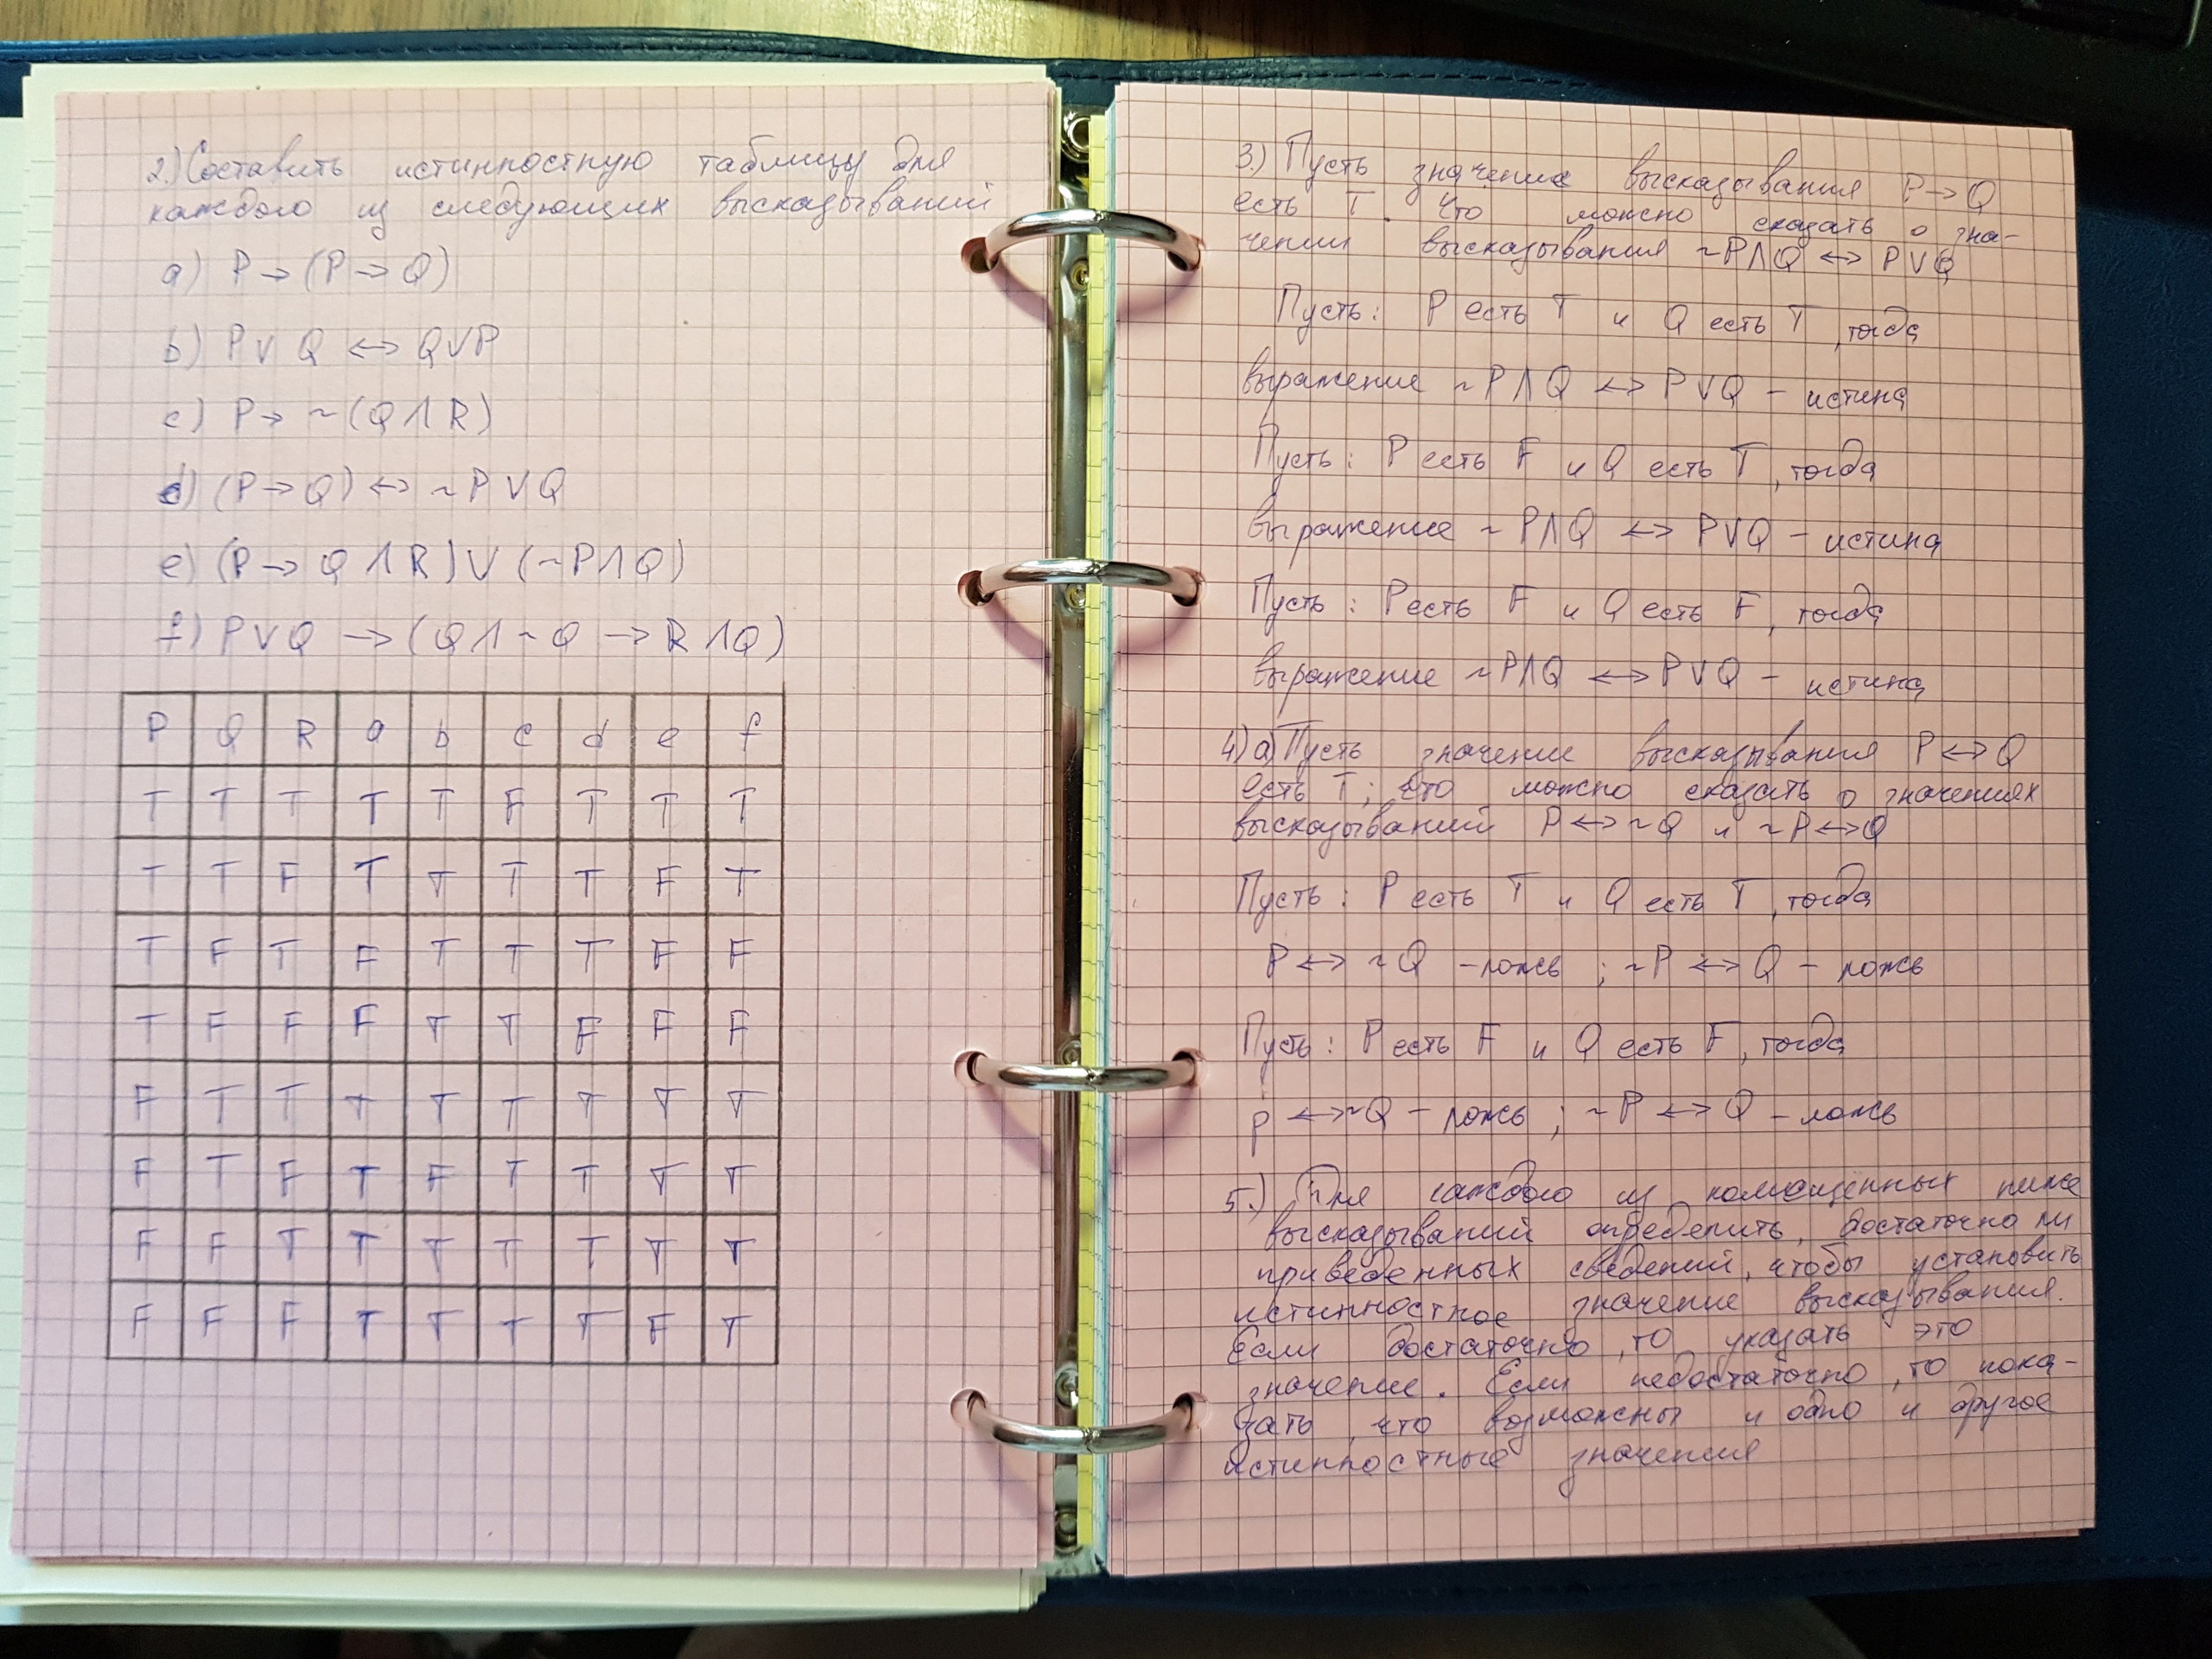 2.) Составить истинностную таблицу для
каждого из следующих высказываний
a) P → (P → Q)
b) P ∨ Q ↔ Q ∨ P
c) P → ~(Q ∧ R)
d) (P → Q) ↔ ~P ∨ Q
e) (P → Q ∧ R) ∨ (~P ∧ Q)
f) P ∨ Q → (Q ∧ ~Q → R ∧ Q)
P Q R a b c d e f
T T T T T F T T T
T T F T T T T F T
T F T F T T T F F
T F F F T T F F F
F T T T T T T T T
F T F T F T T T T
F F T T T T T T T
F F F T T T T F T
3.) Пусть значение высказывания P → Q
есть T. Что можно сказать о зна-
чении высказывания ~P ∧ Q ↔ P ∨ Q
Пусть: P есть T и Q есть T, тогда
выражение ~P ∧ Q ↔ P ∨ Q – истина
Пусть: P есть F и Q есть T, тогда
выражение ~P ∧ Q ↔ P ∨ Q – истина
Пусть: P есть F и Q есть F, тогда
выражение ~P ∧ Q ↔ P ∨ Q – истина
4) a) Пусть значение высказывания P ↔ Q
есть T; что можно сказать о значениях
высказываний P ↔ ~Q и ~P ↔ Q
Пусть: P есть T и Q есть T, тогда
P ↔ ~Q – ложь ; ~P ↔ Q – ложь
Пусть: P есть F и Q есть F, тогда
P ↔ ~Q – ложь ; ~P ↔ Q – ложь
5.) Для каждого из помещённых ниже
высказываний определить, достаточно ли
приведенных сведений, чтобы установить
истинностное значение высказывания.
Если достаточно, то указать это
значение. Если недостаточно, то пока-
зать, что возможны и одно и другое
истинностные значения